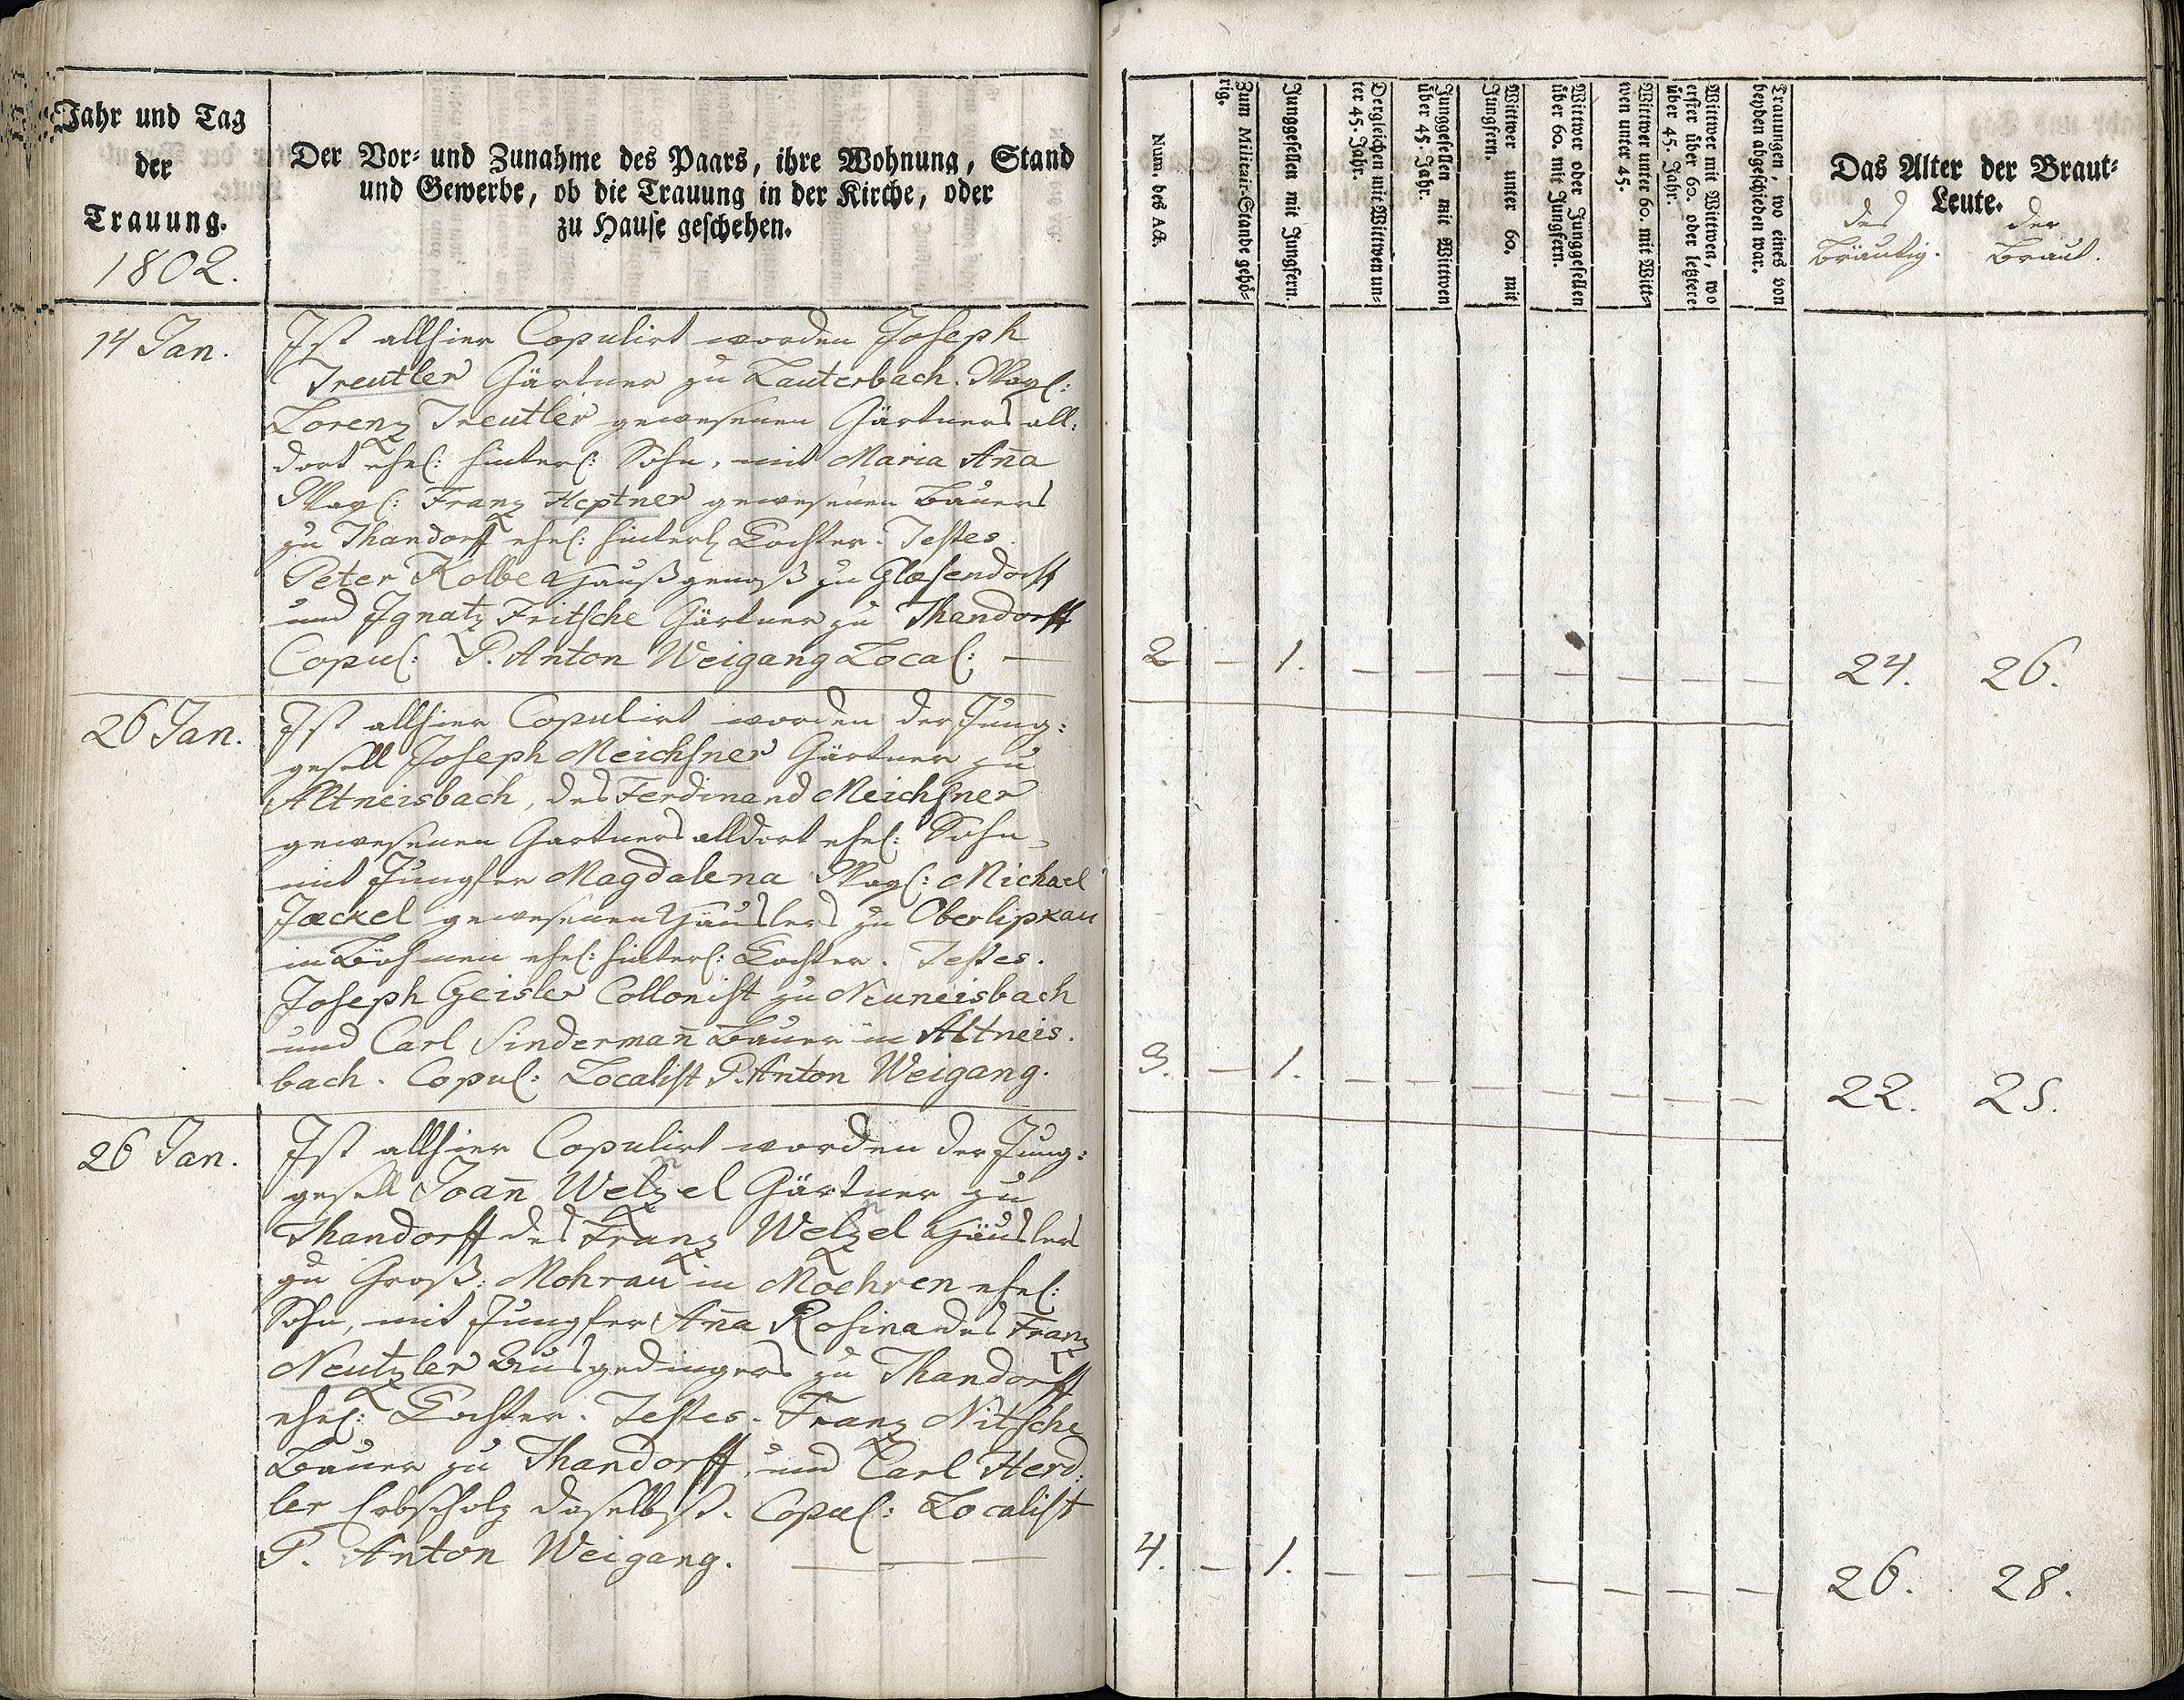 Jahr und Tag
der
Trauung.
1802.
Der Vor- und Zunahme des Paars, ihre Wohnung, Stand
und Gewerbe, ob die Trauung in der Kirche, oder
zu Hause geschehen.
14 Jan.
Ist allhier Copulirt worden Joseph
Treutler Gärtner zu Lauterbach.
Lorenz Treutler gewesenen Gärtners all:
dort ehel: hinterl: Sohn, mit Maria Ana
Franz Heptner gewesenen Bauers
zu Thandorff ehel: hinterl: Tochter. Testes.
Peter Kolbe Haußgenoß zu Glasendorff
und Ignatz Fritsche Gärtner zu Thandorff
Copul: P. Anton Weigang Local: —
26 Jan.
Ist allhier Copulirt worden der Jung:
gesell Joseph Meichsner Gärtner zu
Altneisbach, des Ferdinand Meichsner
gewesenen Gartners alldort ehel: Sohn,
mit Jungfer Magdalena Michael
Jackel gewesenen Häuslers zu Oberlipkau
in Böhmen ehel: hinterl: Tochter. Testes.
Joseph Geisler Collonist zu Neuneisbach
und Carl Sinderman̄ Bauer in Altneis.
bach. Copul: Localist P. Anton Weigang.
26 Jan.
Ist allhier Copulirt worden der Jung:
gesell Joan̄ Welzel Gärtner zu
Thandorff des Franz Welzel Häuslers
zu Groß: Mohrau in Maehren ehel:
Sohn, mit Jungfer An̄a Rosina des Franz
Neutzler Ausgedingers zu Thandorff
ehel: Tochter. Testes. Franz Nitsche
Bauer zu Thandorff, und Carl Herd:
ler Erbscholz daselbst. Copul: Localist
P. Anton Weigang. — — —
Num. des Act.
Zum Militair-Stande gehö-
rig.
Junggesellen mit Jungfern.
Dergleichen mit Wittwen un-
ter 45. Jahr.
Junggesellen mit Wittwen
über 45. Jahr.
Wittwer unter 60. mit
Jungfern.
Wittwer oder Junggesellen
über 60. mit Jungfern.
Wittwer unter 60. mit Witt-
wen unter 45.
Wittwer mit Wittwen, wo
erster über 60. oder letztere
über 45. Jahr.
Trauungen, wo eines von
beyden abgeschieden war.
Das Alter der Braut-
Leute.
des der
Bräutig. Braut.
2 — 1. — — — — — — — 24. 26.
3. — 1. — — — — — — — 22. 25.
4. — 1. — — — — — — — 26. 28.